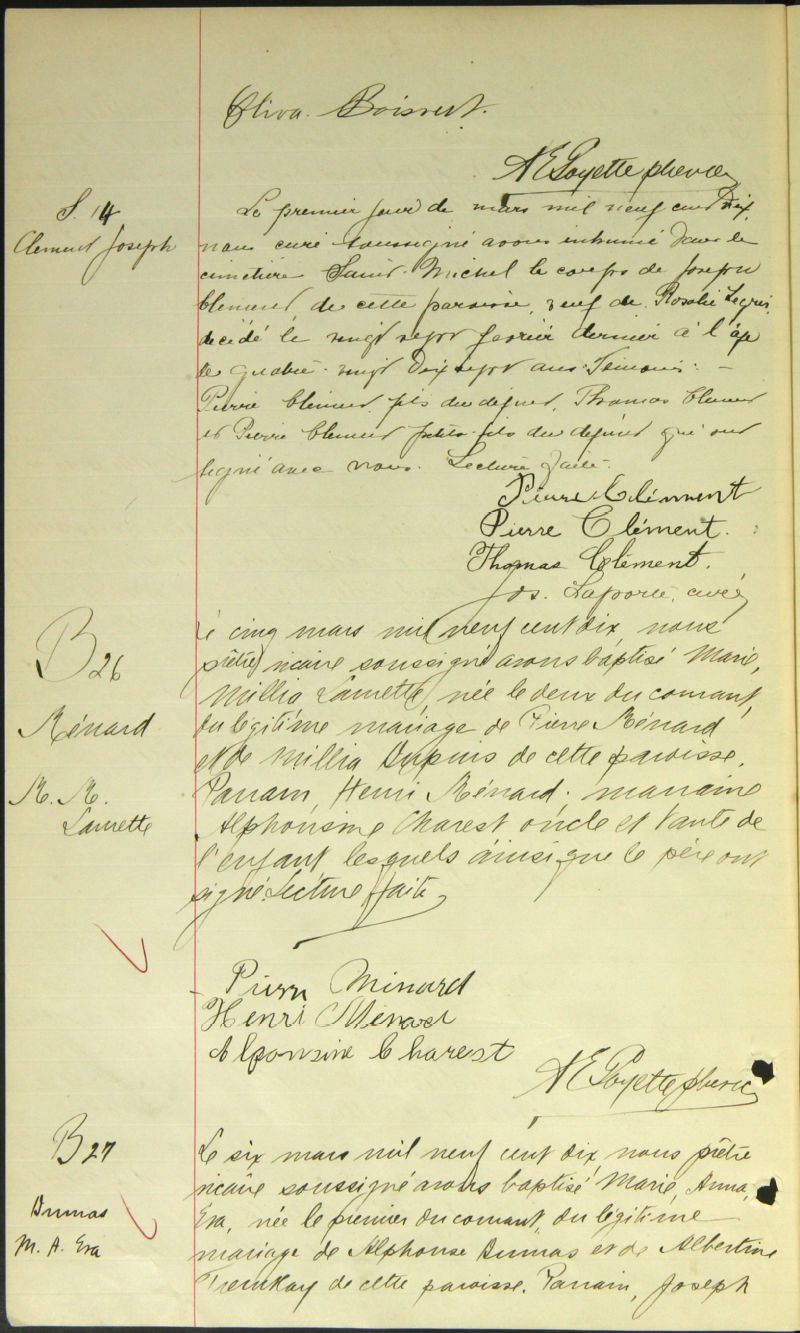 Oliva Boisvert.
N E Payette ptre vic
S. 14
Clement Joseph
Le premier jour de mars mil neuf cent dix,
nous curé soussigné avons inhumé dans le
cimetière Saint-Michel le corps de Joseph
Clement, de cette paroisse, veuf de Rosalie Legris,
décédé le vingt sept fevrier dernier à l'âge
de quatre-vingt dix sept ans. Témoins: —
Pierre Clement, fils du défunt, Thomas Clement
et Pierre Clement petits-fils du défunt qui ont
signé avec nous. Lecture faite.
Pierre Clément
Pierre Clément.
Thomas Clément.
Jos. Laporte, curé
B 26
Ménard
M. M.
Laurette
Le cinq mars mil neuf cent dix, nous
prêtre vicaire soussigné avons baptisé Marie,
Millia Laurette, née le deux du courant,
du légitime mariage de Pierre Ménard
et de Millia Dupuis de cette paroisse.
Parrain, Henri Ménard. marraine
Alphonsine Charest oncle et tante de
l'enfant lesquels ainsi que le père ont
signé. Lecture faite
Pierre Minard
Henri Ménard
Alponsine Charest
N E Payette ptre vic
B 27
Dumas
M. A. Eva
Le six mars mil neuf cent dix, nous prêtre
vicaire soussigné avons baptisé Marie, Anna,
Eva, née le premier du courant, du légitime
mariage de Alphonse Dumas et de Albertine
Tremblay de cette paroisse. Parrain, Joseph